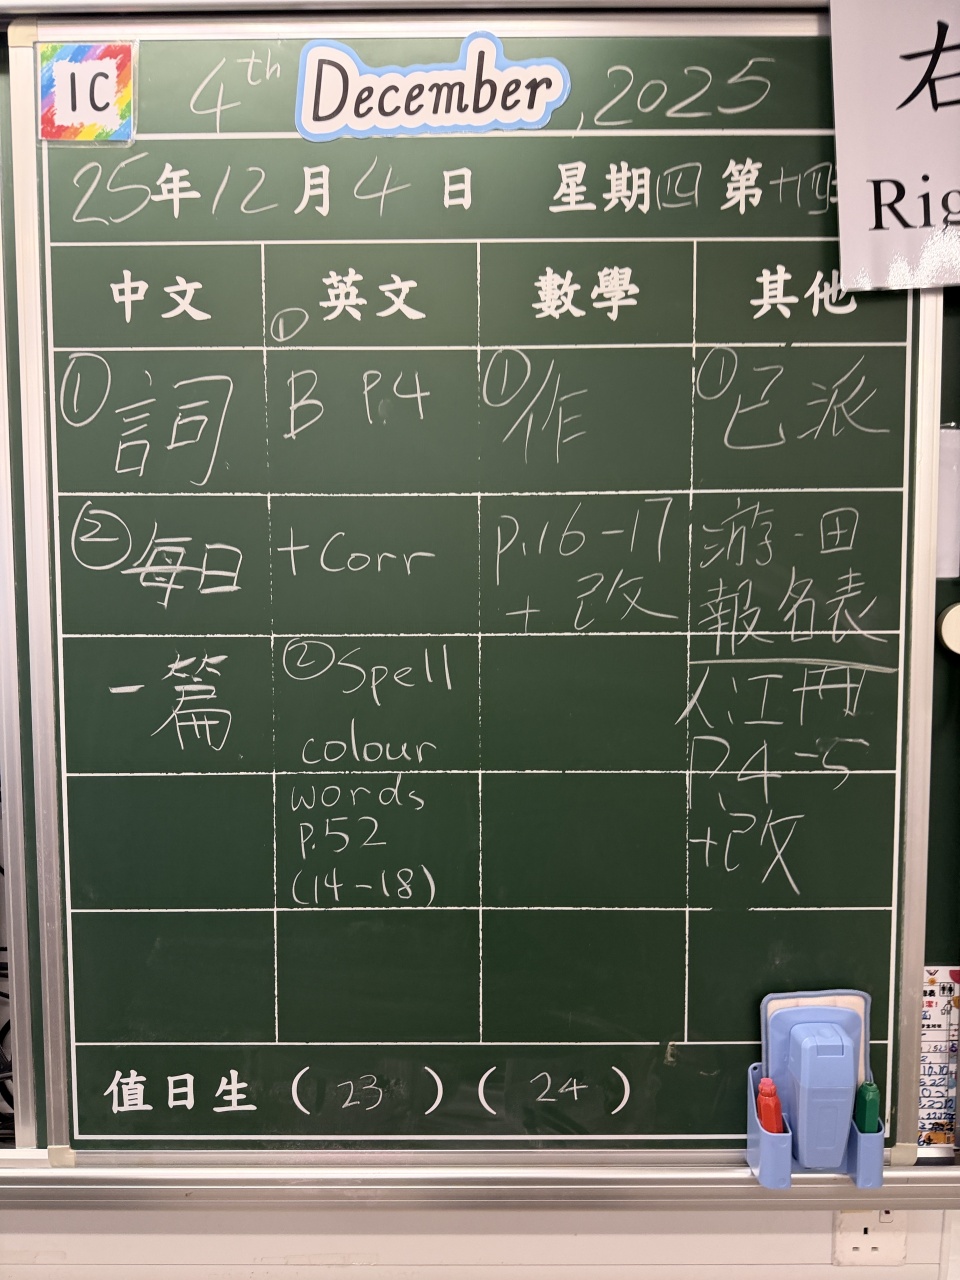 1C
4th December, 2025
25年12月4日 星期四 第十四
右
Rig
中文 英文 數學 其他
①詞
②每日
一篇
① B P.4
+Corr
② Spell
colour
words
p.52
(14-18)
①作
p.16-17
+改
①已派
游·田
報名表
人江門
P.4-5
+改
值日生 ( 23 ) ( 24 )